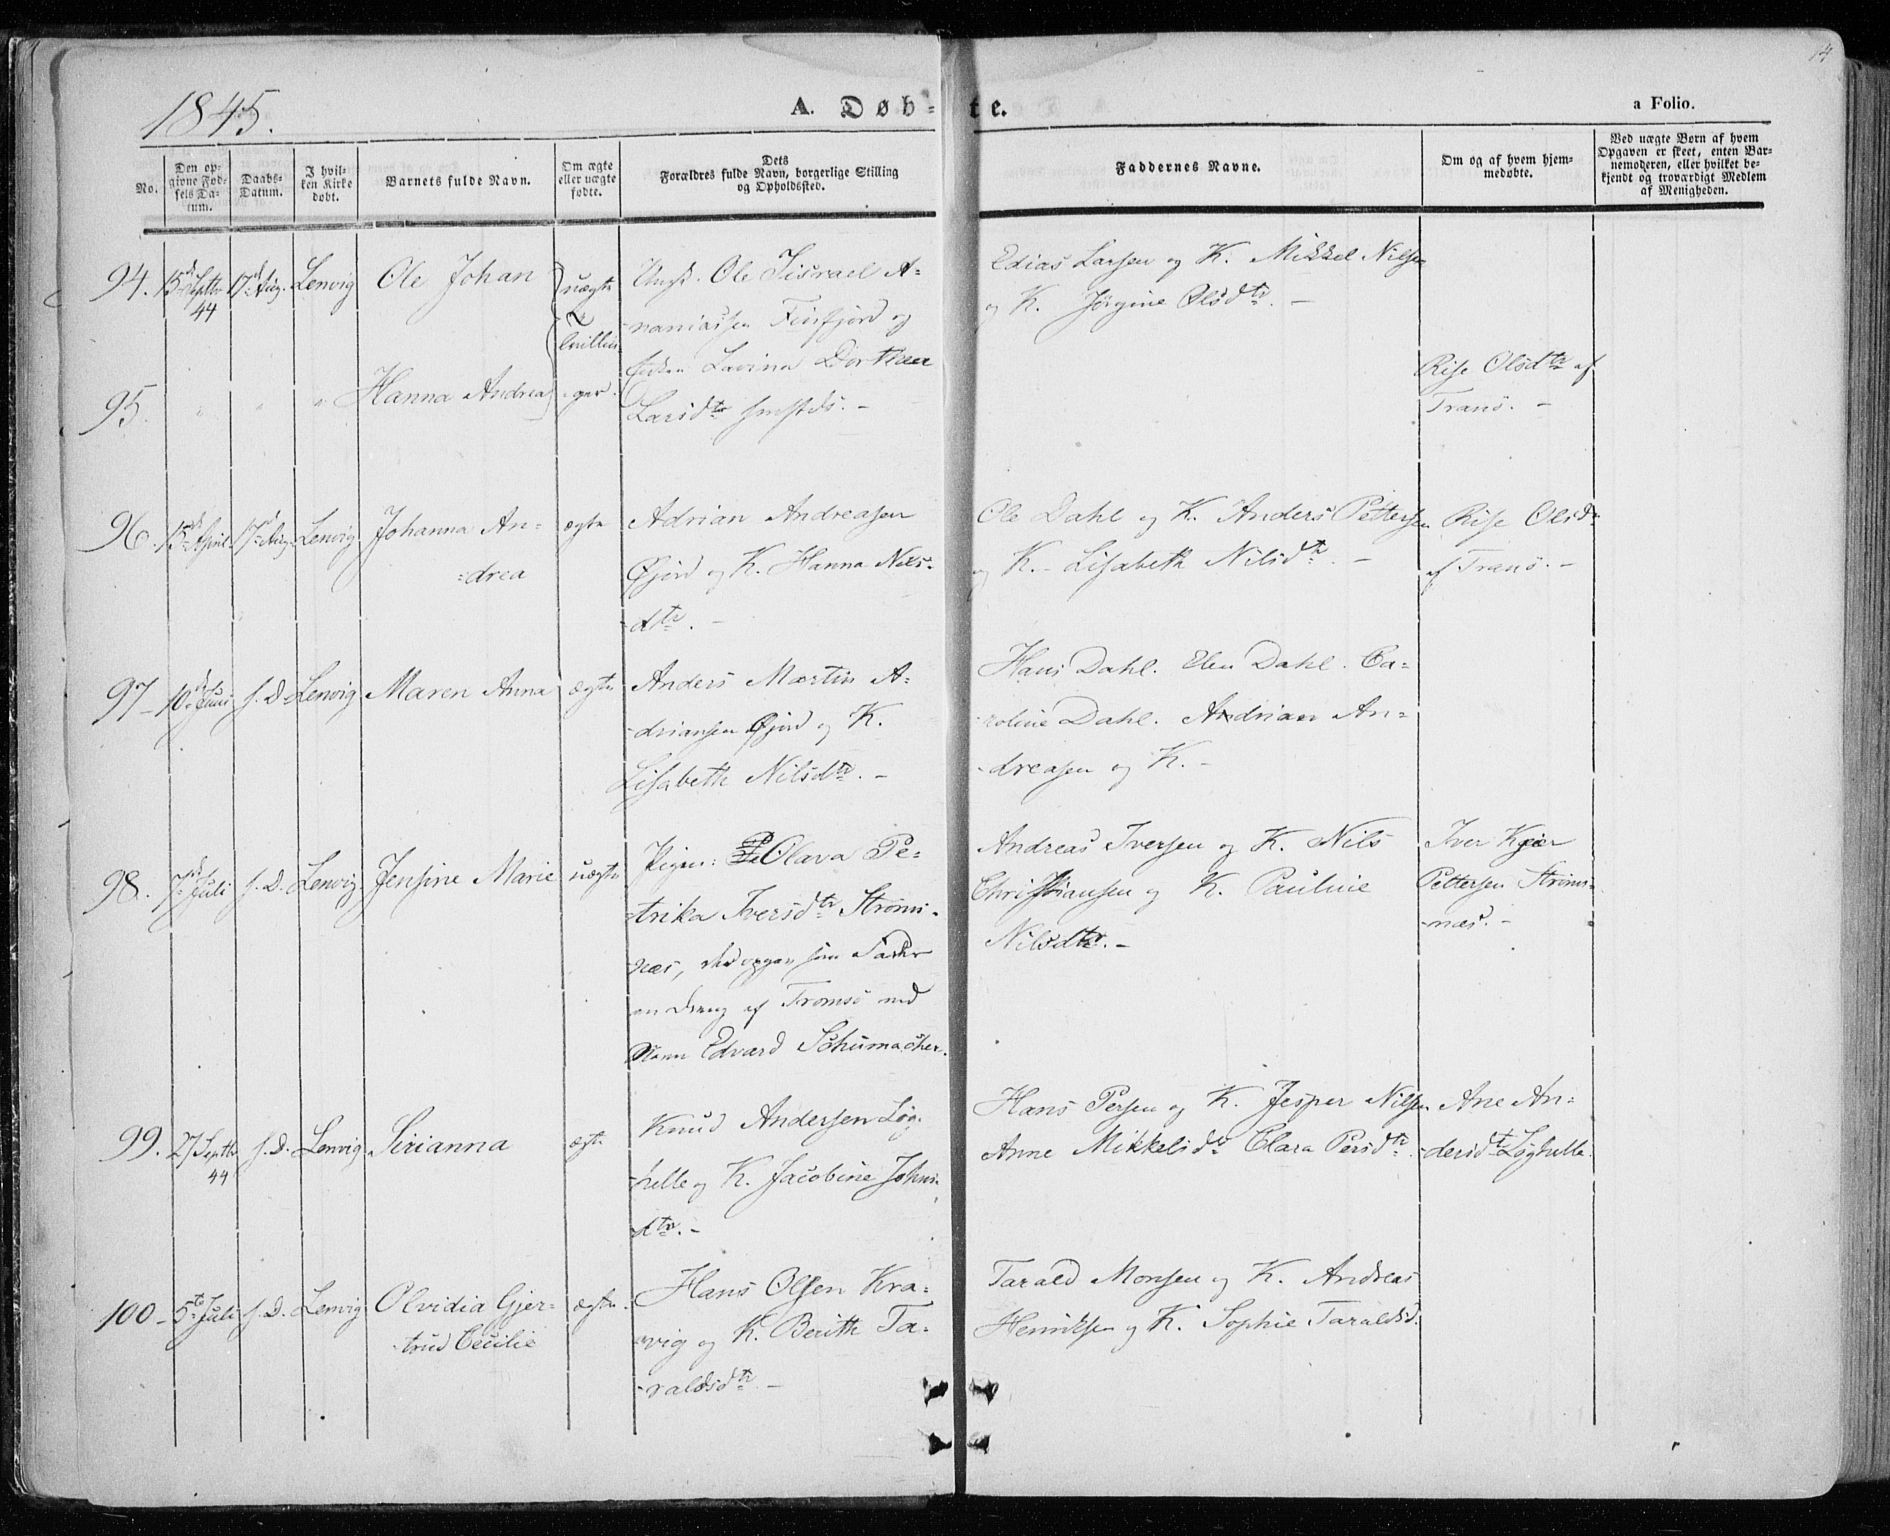 14
1845.
A. Døb-te.
a Folio.
No.
Den op-
givne Fød-
sels Da-
tum.
Daabs-
Datum.
I hvil-
ken Kirke
døbt.
Barnets fulde Navn.
Om ægte
eller uægte
fødte.
Dets
Forældres fulde Navn, borgerlige Stilling
og Opholdssted.
Faddernes Navne.
Om og af hvem hjem-
medøbte.
Ved uægte Børn af hvem
Opgaven er skeet, enten Bar-
nemoderen, eller hvilket be-
kjendt og troværdigt Medlem
af Menigheden.
94. 15de Septbr 44 17de Aug. Lenvig Ole Johan uægte
Ungk. Ole Jisrael A-
naniassen Finfjord og
Lavina Dorthea
Larsdtr smstds. -
Edias Larsen og K. Mikkel Nilsen
og K. Jørgine Olsdtr. -
95. " " " Hanna Andrea
Rise Olsdtr af
Trans. -
96. 15de April. 17de Aug. Lenvig Johanna An-
drea
ægte
Adrian Andreasen
Øjord og K. Hanna Niels-
dtr. -
Ole Dahl og K. Anders Pettersen
og K. - Lisabeth Nilsdtr. -
Rise Olsdtr
af Trans. -
97 - 10de Juni s. D. Lenvig Maren Anna ægte
Anders Martin A-
driansen Øjord og K.
Lisabeth Nilsdtr. -
Hans Dahl. Elen Dahl. Ca-
roline Dahl. Andrian An-
dreasen og K. -
98. 7de Juli s. D. Lenvig Jensine Marie uægte
Pigen: Olava Pe-
trika Iversdtr Strøms-
næs, der opgav som Fader
en Dreng af Tromsø ved
Navn Edvard Schumacher.
Andreas Iversen og K. Nils
Christiansen og K. Pauline
Nilsdtr. -
Iver Kjær
Pettersen Strøms-
næs. -
99. 27 Septbr 44 s. D. Lenvig Sirianna ægte
Knud Andersen Løg-
helle og K. Jacobine Johns-
dtr. -
Hans Persen og K. Jesper Nilsen
Anne Mikkelsdtr Clara Persdtr.
Ane An-
dersdtr Løghelle.
100 - 5te Juli s. D. Lenvig Olvidia Gjer-
trud Cecilie
ægte.
Hans Olsen Kra-
vig og K. Berith Ta-
raldsdtr. -
Tarald Monsen og K. Andreas
Henriksen og K. Sophie Taraldsd.